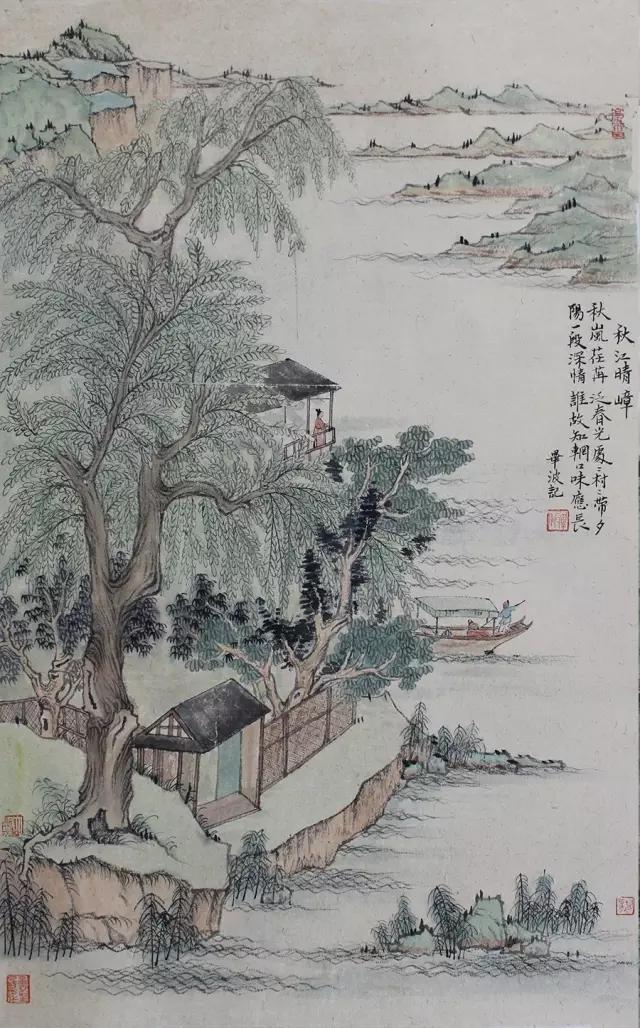 秋江晴嶂
秋嵐荏苒泛春光處〻村〻帶夕
陽一段深情誰故知輞口味應長
畢波記